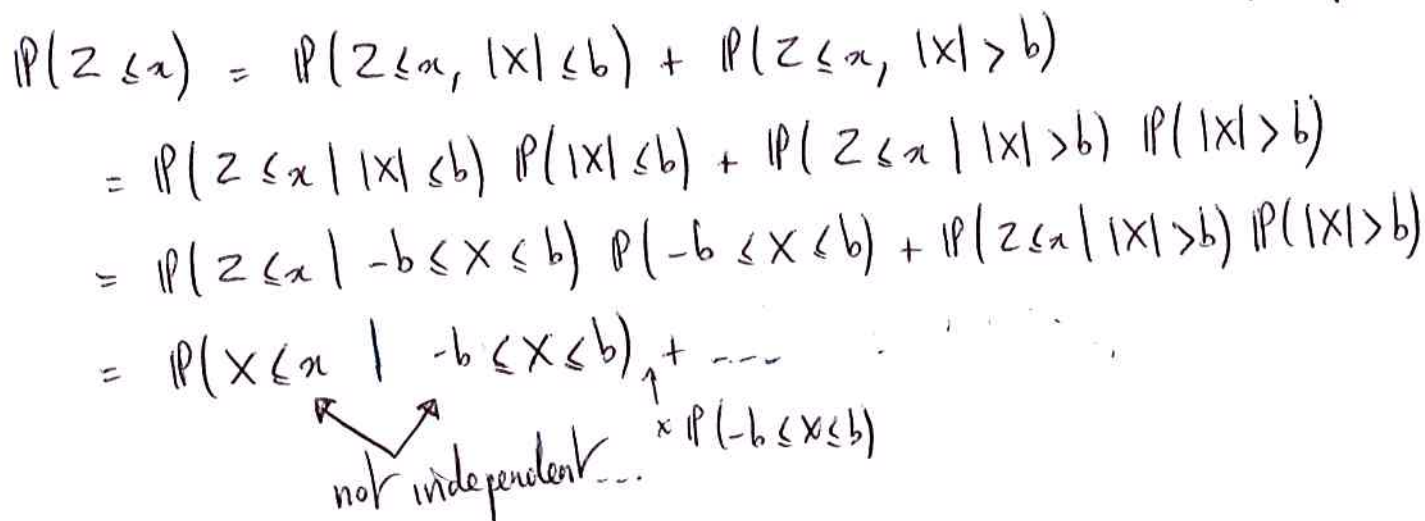 ℙ(Z ≤ x) = ℙ(Z ≤ x, |X| ≤ b) + ℙ(Z ≤ x, |X| > b)
= ℙ(Z ≤ x | |X| ≤ b) ℙ(|X| ≤ b) + ℙ(Z ≤ x | |X| > b) ℙ(|X| > b)
= ℙ(Z ≤ x | -b ≤ X ≤ b) ℙ(-b ≤ X ≤ b) + ℙ(Z ≤ x | |X| > b) ℙ(|X| > b)
= ℙ(X ≤ x | -b ≤ X ≤ b) + ----
× ℙ(-b ≤ X ≤ b)
not independent...